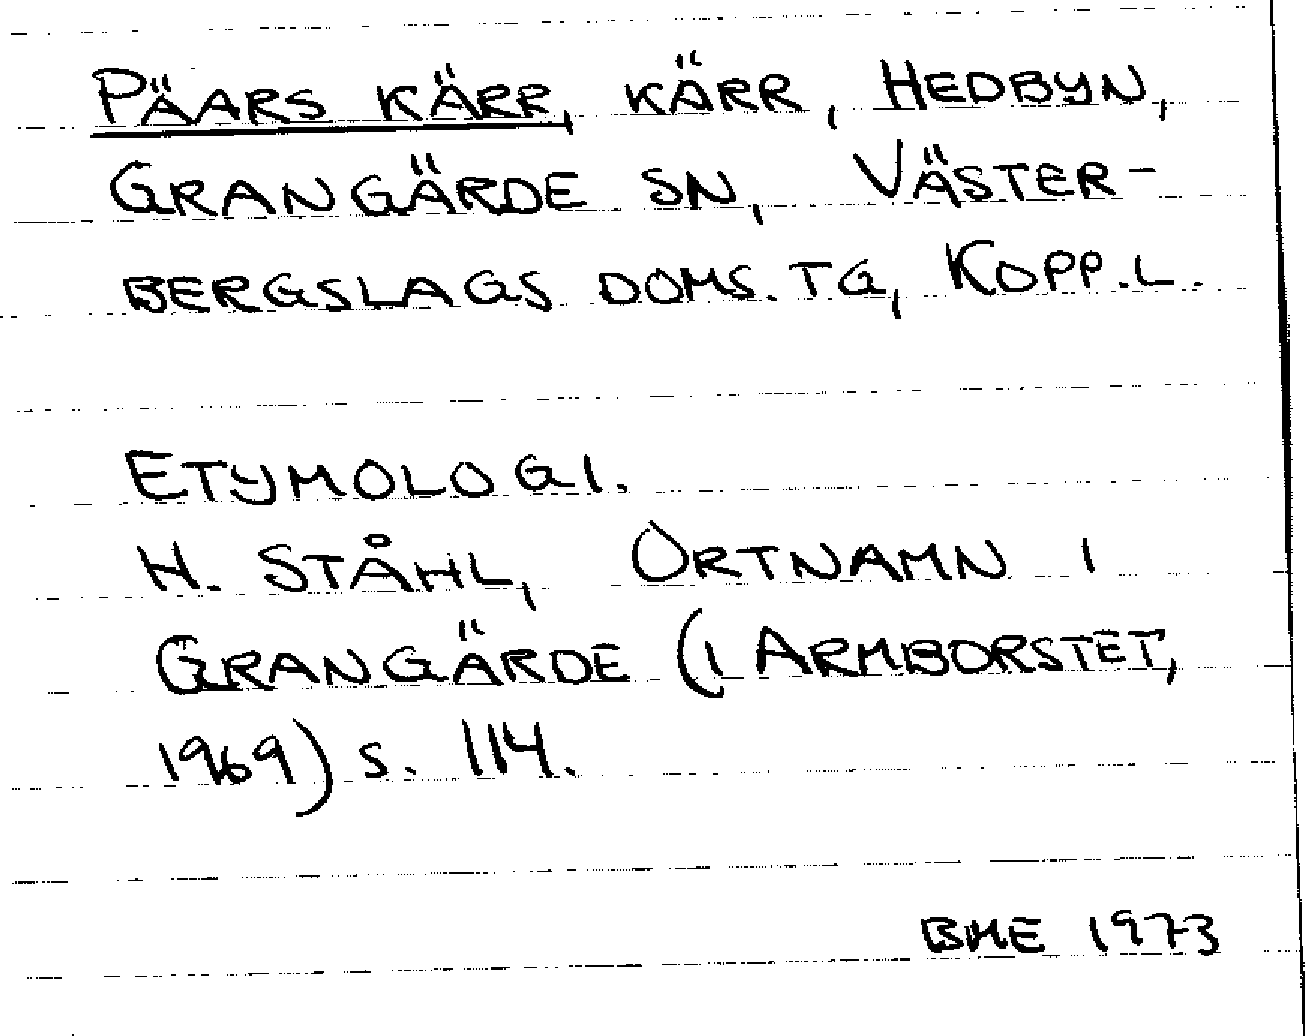 PÄARS KÄRR, KÄRR, HEDBYN,
GRANGÄRDE SN, VÄSTER-
BERGSLAGS DOMS.TG, KOPP.L.
ETYMOLOGI.
H. STÅHL, ORTNAMN I
GRANGÄRDE (I ARMBORSTET,
1969) S. 114.
BME 1973